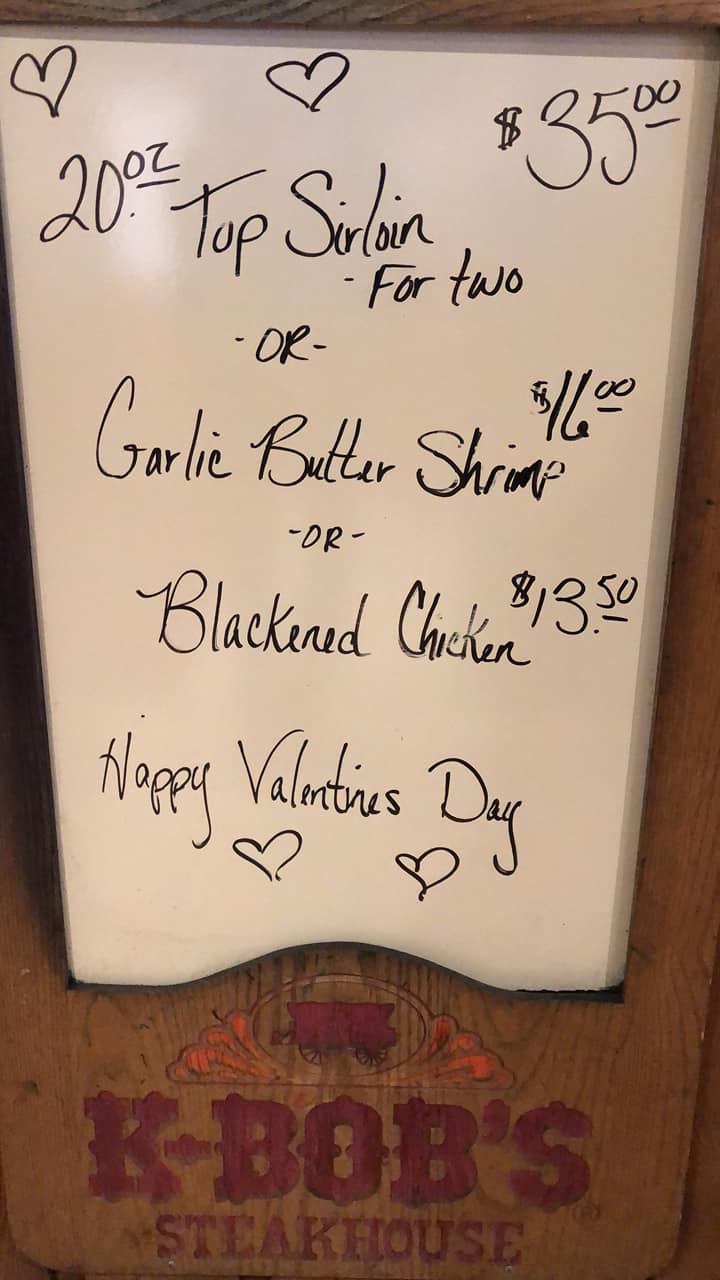 $35.00
20oz Top Sirloin
- For two
- OR -
$16.00
Garlic Butter Shrimp
- OR -
Blackened Chicken $13.50
Happy Valentines Day
K-BOB'S
STEAKHOUSE